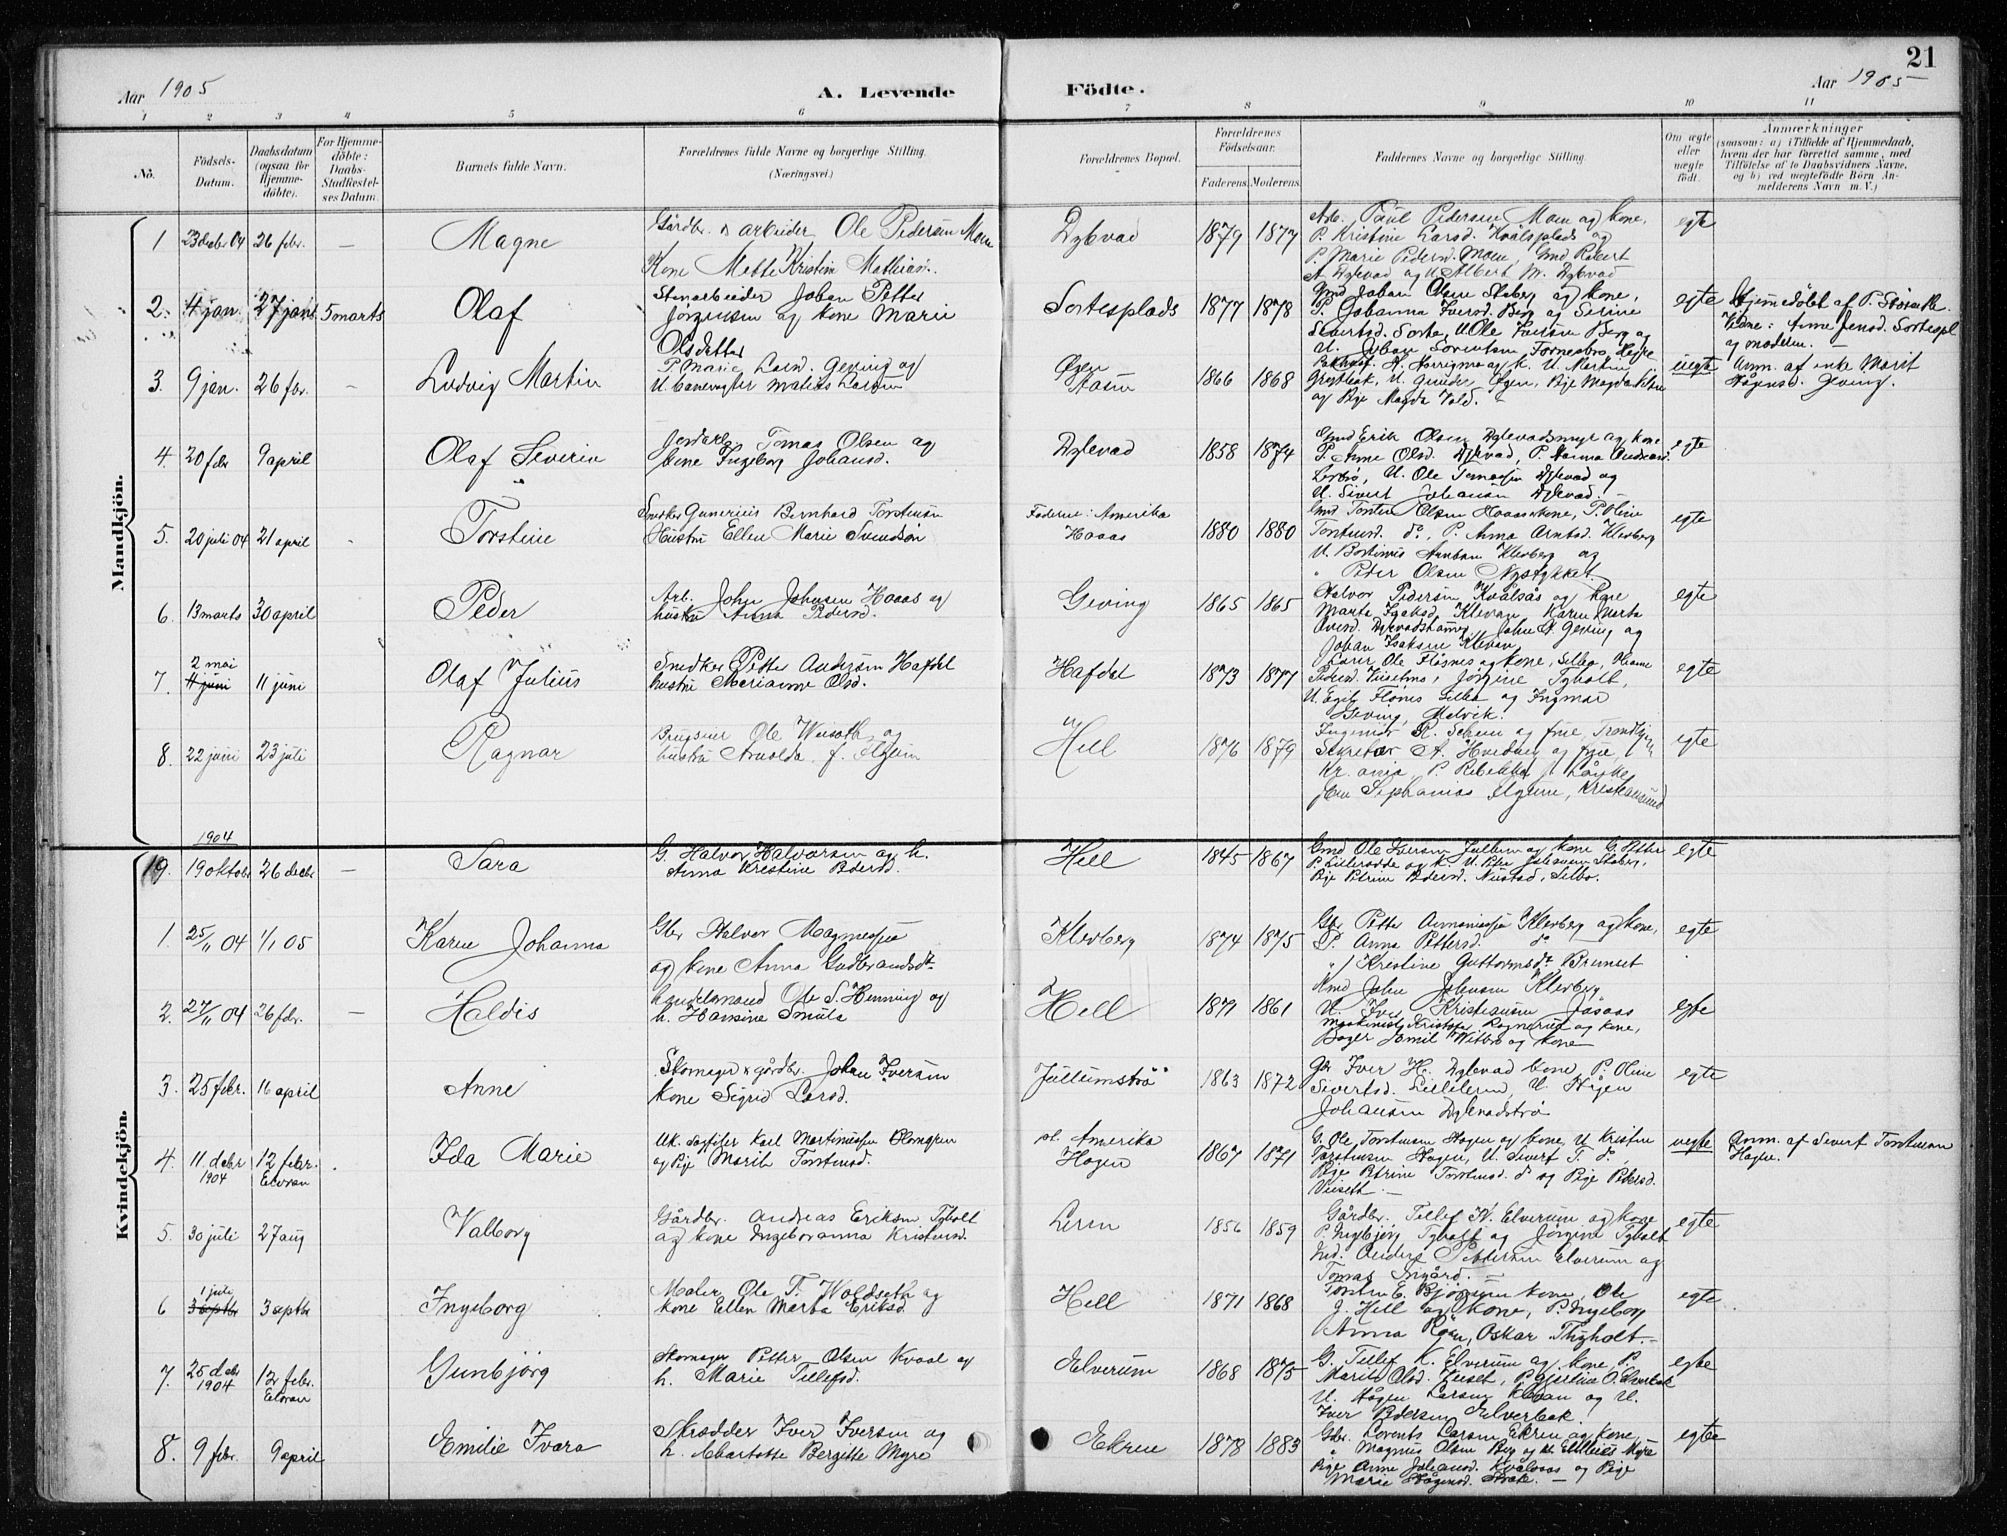 21
Aar 1905
A. Levende Födte.
Aar 1905
1 2 3 4 5 6 7 8 9 10 11
No.
Födsels-Datum.
Daabsdatum (ogsaa för Hjemme-döbte).
For Hjemme-döbte: Daabs-Stadfæstel-ses Datum.
Barnets fulde Navn.
Forældrenes fulde Navne og borgerlige Stilling.
(Næringsvei.)
Forældrenes Bopæl.
Forældrenes Födselsaar.
Faderens. Moderens.
Faddernes Navne og borgerlige Stilling.
Om ægte eller uægte födt.
Anmærkninger
(saasom: a) i Tilfælde af Hjemmedaab, hvem der har forrettet samme, med Tilföielse af to Daabsvidners Navne, og b) ved uægtefödte Börn Anmelderens Navn m. V.)
Mandkjön.
1 23 decbr 04 26 febr. – Magne
Gårdbr. & arbeider Ole Pedersen Moen
Kone Mette Kristin Mathiasd.
Dybvad 1879 1877
Arb. Paul Pedersen Moen og kone,
P. Kristine Larsd. Kvålsplads og
P. Marie Pedersd. Moen, Gmd Robert
A Dybvad og U Albert M. Dybvad
egte
2. 4 jan. 27 jan. 5 marts Olaf
Stenarbeider Johan Petter
Jørgensen og kone Marie
Olsdatter
Sortesplads 1877 1878
Gmd Johan Olsen Staberg og kone,
P. Johanna Iversd. Berg og Serine
Sivertsd. Sorte, U Ole Iversen Berg og
U. Johan Sorentsen
egte
Hjemmedøbt af P. Størseth.
Vidne: Anne Jensd. Sortespl
og moderen.
3. 9 jan. 26 febr. – Ludvig Martin
P. Marie Larsd. Geving og
U. Mathias Larsen
Øyen
Aasen 1866 1868
og Pige Magda Vold.
uegte
Anm. af enke Marit
Hågensd. Geving.
4. 20 febr 9 april Olaf Severin
Jordarb. Tomas Olsen og
kone Ingeborg Johansd.
Dybvad 1858 1874
Gmd Erik Olsen Dybvadsmyr og kone
P. Anne Olsd. Dybvad, P. Hanna
U. Ole Tomassen Dybvad og
U. Sivert Johansen Dybvad. –
egte
5. 20 juli 04 21 april - Torstein
Snedker Gunerius Bernhard Torstensen
Hustru Ellen Marie Svendsøn
Faderen: Amerika
Haaas 1880 1880
Gmd Torsten Olsen Haaas & kone, P. Oline
Torstensd. do, P. Anna Arntsd. Kleberg
U. Bortinus Arntsen Kleberg og
" Peder Olsen Nystykket
egte
6. 13 marts 30 april Peder
Arb. John Johnsen Haaas og
hustru Anna Pedersd.
Geving 1865 1865
Halvor Pedersen Kvålsås og Pige
Marta Isaksd. Klevan, Karen Marta
Oversd. Dybvadshaug, John A. Geving og
Johan Isaksen Klevan
egte
7. 2 mai 4 juni 11 juni Olaf Julius
Snedker Petter Andersen Hafdal
hustru Marianne Olsd.
Hafdal 1873 1877
Lærer Ole Flåsnes og kone, Selbo, Hanne
Pedersd. Vuselmo, Jørgine Tyholt,
U. Egil Flønes Selbo og Ingmar
Geving, Malvik.
egte
8. 22 juni 23 juli Ragnar
Brugseier Ole Wiseth og
hustru Arnolda f. Ilgum
Hell 1876 1879
Ingeniør R. Schem og frue, Trondhjem
Sekretær A. Hvedning og frue,
Kr.ania, P. Rebekka f. Lånke
Jens Stephanias Ilgum, Kristiansund
egte
Kvindekjön.
1904
19. 19 oktobr 26 decbr – Sara
G. Halvor Halvorsen og h.
Anna Kristine Pedersd.
Hell 1845 1867
Gmd Ole Iversen Jullum og kone
P. Lillerødde og k. U. Peter Johansen Staberg,
Pige Petrine Pedersd. Nustad, Selbo.
egte
1. 25/11 04 1/1 05 Karen Johanna
Gbr Halvor Magnussen
og kone Anna Gudbrandsdt
Kleberg 1874 1875
Gbr Petter Armaniussen Kleberg og kone,
P. Anna Pettersd. do
" Kristine Guttormsdt Bremset
egte
2. 27/11 04 26 febr. – Haldis
handelsmand Ole S. Henning og
h. Hansine Smula
Hell 1871 1861
Gmd John Johnsen Kleberg
U. Iver Kristiansen Jøsaas
Maskinist Kristofer Ragnerud og kone,
Bager Emil Witbro og kone
egte
3. 25 febr. 16 april Anne
Skomager & gårdbr. Johan Iversen
kone Sigrid Larsd.
Jullumstrø 1863 1872
Gbr Iver H. Dybvad kone, P. Oline
Sivertsd. Lillelerin, U. Hågen
Johansen Dybvadstrø
egte
4. 11 decbr 1904 12 febr. Elvran Ida Marie
Uk. Karl Martinussen Olmgren
og Pige Marit Torstensd.
pt. Amerika
Hogen 1867 1871
G. Ole Torstensen Hogen og kone, U Kristen
Torstensen Hogen, U Sivert T. do,
Pige Petrine Torstensd. do og Pige Petersd.
Viiseth –
uegte
Anm. af Sivert Torstensen
Hogen.
5. 30 juli 27 aug Valborg
Gårdbr. Andreas Eriksen Tyholt
og kone Ingeboranna Kristensd.
Lerin 1856 1859
Gårdbr. Tillef K. Elverum og kone
P. Ingebjørg Tyholt og Jørgine Tyholt
Ind. Anders Pettersen Elverum og
Tomas Ingård. –
egte
6 1 juli 3 septbr 3 septbr Ingeborg
Maler Ole T. Woldseth og
kone Ellen Marta Eriksd
Hell 1871 1868
Torsten E. Bjørgum kone, Ole
J. Hell og kone, P. Ingeborg
Anna Røen, Oskar Thyholt. –
egte
7. 25 decbr 1904 12 febr. Elvran Gunbjørg
Skomager Petter Olsen Kvaal og
h. Marie Tillefsd.
Elverum 1868 1875
G. Tillef K. Elverum og kone, P.
Marit Olsd. Viiset, P. Gjertine O. Elverbak
U. Hågen Larsen Klevan og U.
Iver Pedersen Elverbak.
egte
8. 9 febr. 9 april Emilie Ivara
Skrædder Iver Iversen og
h. Charlotte Bergitte Myre
Ekren 1878 1883
Gbr. Lorents Larsen Ekren og kone,
" Magnus Olsen Berg og
Pige Anne Johansd. Kvålsaas og Pige
Marie Hågensd. –
egte